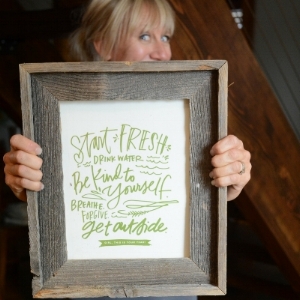 Start FRESH
DRINK WATER
Be kind to
Yourself
BREATHE
FORGIVE
get outside